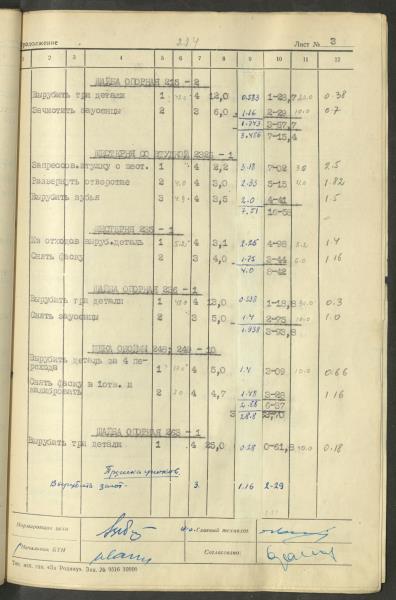 родолжение 234 Лист № 3
1 2 3 4 5 6 7 8 9 10 11 12
ШАЙБА ОПОРНАЯ 215 - 2
Вырубить три детали 1 4 12,0 0.583 1-23,7 0.38
Зачистить заусенцы 2 3 6,0 1.16 2-29 10.0 0.7
1.743 3-57,7
3.486 7-15,4
ШЕСТЕРНЯ СО ВТУЛКОЙ 232Б - 1
Запрессов.втулку с шест. 1 4 2,2 3.18 7-02 2.5
Развернуть отверстие 2 4.0 4 3,0 2.33 5-15 1.82
Вырубить зубья 3 4.8 4 3,5 2.0 4-41 1.5
7.51 16-58
ШЕСТЕРНЯ 235 - 1
Из отходов выруб.деталь 1 4 3,1 2.26 4-98 1.4
Снять фаску 2 3 4,0 1.75 3-44 1.16
4.0 8-42
ШАЙБА ОПОРНАЯ 236 - 1
Вырубить три детали 1 4 13,0 0.538 1-18,8 0.3
Снять заусенцы 2 3 5,0 1.4 2-75 10.0 1.0
1.938 3-93,8
ЩЕКА ОБОЙМЫ 248; 249 - 10
Вырубить деталь за 4 пе-
рехода 1 4 5,0 1.4 3-09 10.0 0.66
Снять фаску в 1отв. и
калибровать 2 4 4,7 1.48 3-28 1.16
2.88 6-37
28.8
ШАЙБА ОПОРНАЯ 263 - 1
Вырубить три детали 1 4 25,0 0.28 0-61,8 0.18
Вырубить загот. 3. 1.16 2-29
Нормировщик цеха И.о. Главный технолог
Начальник БТН Согласовано:
Тип. изд. газ. «За Родину». Зак. № 9516 10000